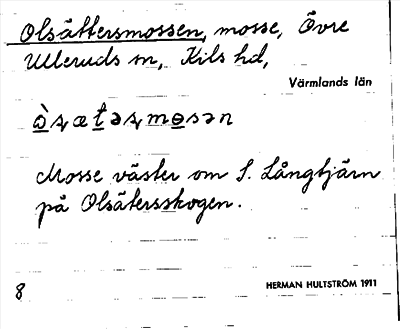 Olsättersmossen, mosse, Övre
Ulleruds sn, Kils hd,
Värmlands län
Mosse väster om S. Långtjärn
på Olsätersskogen.
8
HERMAN HULTSTRÖM 1911